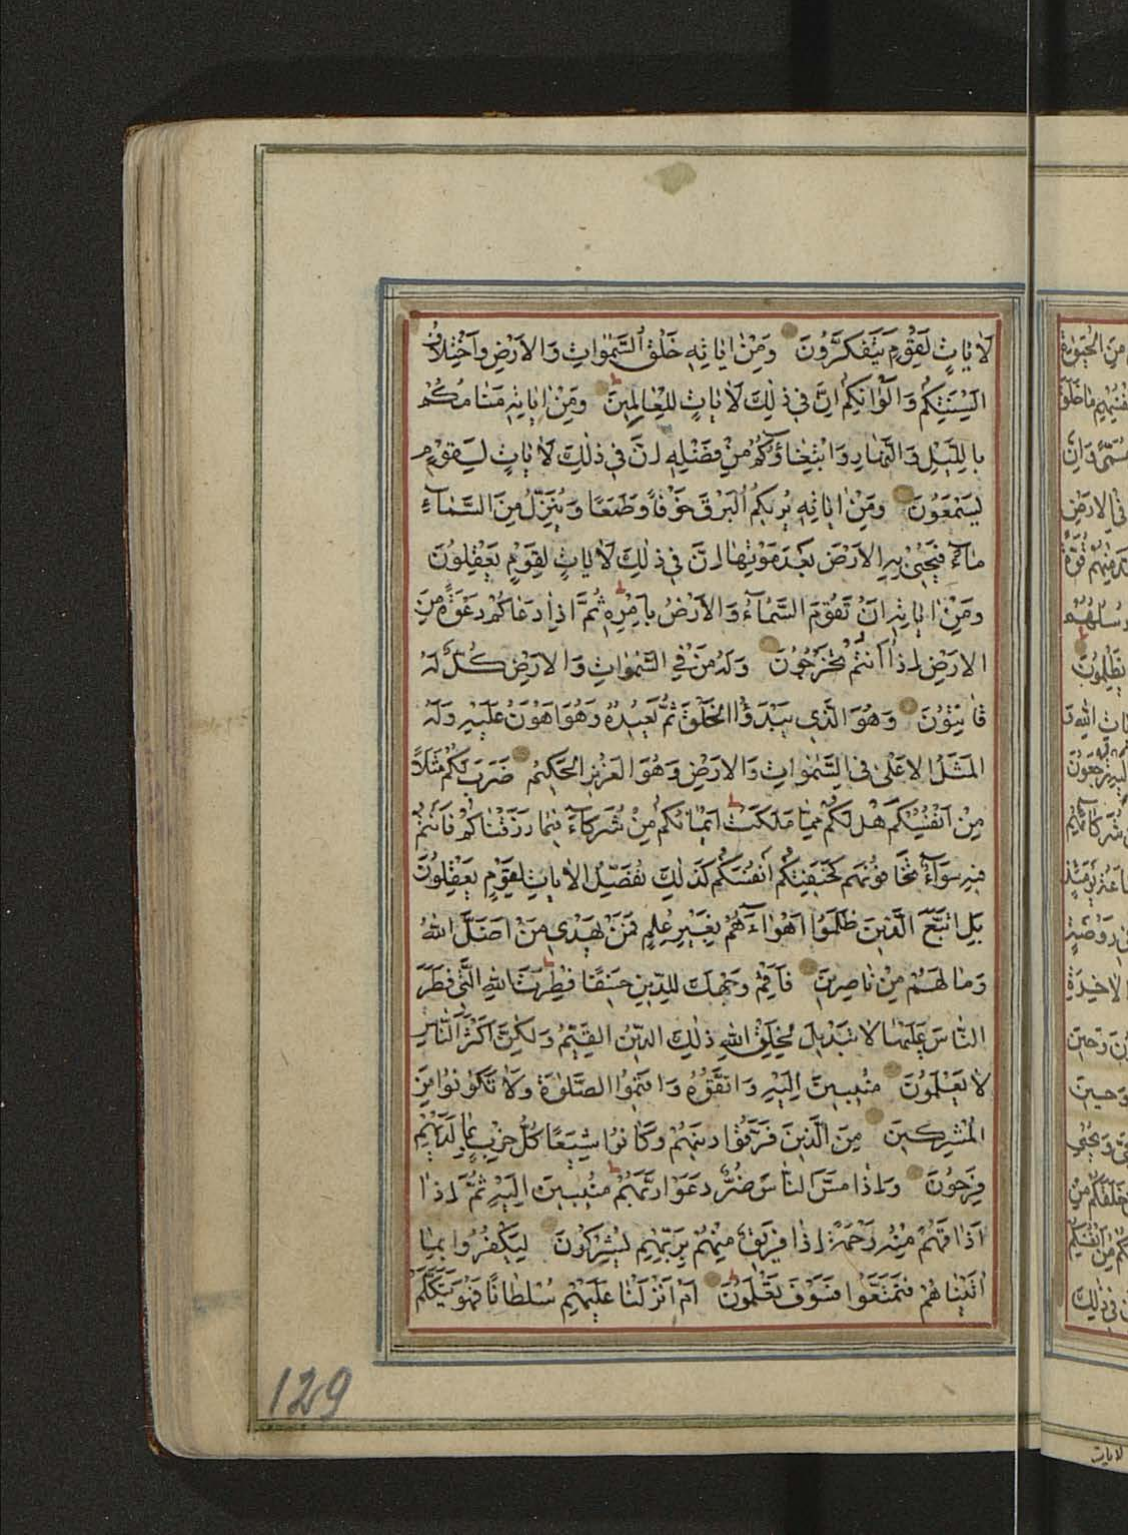 لَاٰيَاتٍ لِقَوْمٍ يَتَفَكَّرُونَ وَمِنْ اٰيَاتِهِ خَلْقُ السَّمٰوَاتِ وَالْاَرْضِ وَاخْتِلَافُ
اَلْسِنَتِكُمْ وَاَلْوَانِكُمْ اِنَّ فِي ذٰلِكَ لَاٰيَاتٍ لِلْعَالِمِينَ وَمِنْ اٰيَاتِهِ مَنَامُكُمْ
بِاللَّيْلِ وَالنَّهَارِ وَابْتِغَاؤُكُمْ مِنْ فَضْلِهِ اِنَّ فِي ذٰلِكَ لَاٰيَاتٍ لِقَوْمٍ
يَسْمَعُونَ وَمِنْ اٰيَاتِهِ يُرِيكُمُ الْبَرْقَ خَوْفًا وَطَمَعًا وَيُنَزِّلُ مِنَ السَّمَاءِ
مَاءً فَيُحْيِي بِهِ الْاَرْضَ بَعْدَ مَوْتِهَا اِنَّ فِي ذٰلِكَ لَاٰيَاتٍ لِقَوْمٍ يَعْقِلُونَ
وَمِنْ اٰيَاتِهِ اَنْ تَقُومَ السَّمَاءُ وَالْاَرْضُ بِاَمْرِهِ ثُمَّ اِذَا دَعَاكُمْ دَعْوَةً مِنَ
الْاَرْضِ اِذَا اَنْتُمْ تَخْرُجُونَ وَلَهُ مَنْ فِي السَّمٰوَاتِ وَالْاَرْضِ كُلٌّ لَهُ
قَانِتُونَ وَهُوَ الَّذِي يَبْدَؤُا الْخَلْقَ ثُمَّ يُعِيدُهُ وَهُوَ اَهْوَنُ عَلَيْهِ وَلَهُ
الْمَثَلُ الْاَعْلٰى فِي السَّمٰوَاتِ وَالْاَرْضِ وَهُوَ الْعَزِيزُ الْحَكِيمُ ضَرَبَ لَكُمْ مَثَلًا
مِنْ اَنْفُسِكُمْ هَلْ لَكُمْ مِمَّا مَلَكَتْ اَيْمَانُكُمْ مِنْ شُرَكَاءَ فِيمَا رَزَقْنَاكُمْ فَاَنْتُمْ
فِيهِ سَوَاءٌ تَخَافُونَهُمْ كَخِيفَتِكُمْ اَنْفُسَكُمْ كَذٰلِكَ نُفَصِّلُ الْاٰيَاتِ لِقَوْمٍ يَعْقِلُونَ
بَلِ اتَّبَعَ الَّذِينَ ظَلَمُوا اَهْوَاءَهُمْ بِغَيْرِ عِلْمٍ فَمَنْ يَهْدِي مَنْ اَضَلَّ اللّٰهُ
وَمَا لَهُمْ مِنْ نَاصِرِينَ فَاَقِمْ وَجْهَكَ لِلدِّينِ حَنِيفًا فِطْرَتَ اللّٰهِ الَّتِي فَطَرَ
النَّاسَ عَلَيْهَا لَا تَبْدِيلَ لِخَلْقِ اللّٰهِ ذٰلِكَ الدِّينُ الْقَيِّمُ وَلٰكِنَّ اَكْثَرَ النَّاسِ
لَا يَعْلَمُونَ مُنِيبِينَ اِلَيْهِ وَاتَّقُوهُ وَاَقِيمُوا الصَّلٰوةَ وَلَا تَكُونُوا مِنَ
الْمُشْرِكِينَ مِنَ الَّذِينَ فَرَّقُوا دِينَهُمْ وَكَانُوا شِيَعًا كُلُّ حِزْبٍ بِمَا لَدَيْهِمْ
فَرِحُونَ وَاِذَا مَسَّ النَّاسَ ضُرٌّ دَعَوْا رَبَّهُمْ مُنِيبِينَ اِلَيْهِ ثُمَّ اِذَا
اَذَاقَهُمْ مِنْهُ رَحْمَةً اِذَا فَرِيقٌ مِنْهُمْ بِرَبِّهِمْ يُشْرِكُونَ لِيَكْفُرُوا بِمَا
اٰتَيْنَاهُمْ فَتَمَتَّعُوا فَسَوْفَ تَعْلَمُونَ اَمْ اَنْزَلْنَا عَلَيْهِمْ سُلْطَانًا فَهُوَ يَتَكَلَّمُ
129